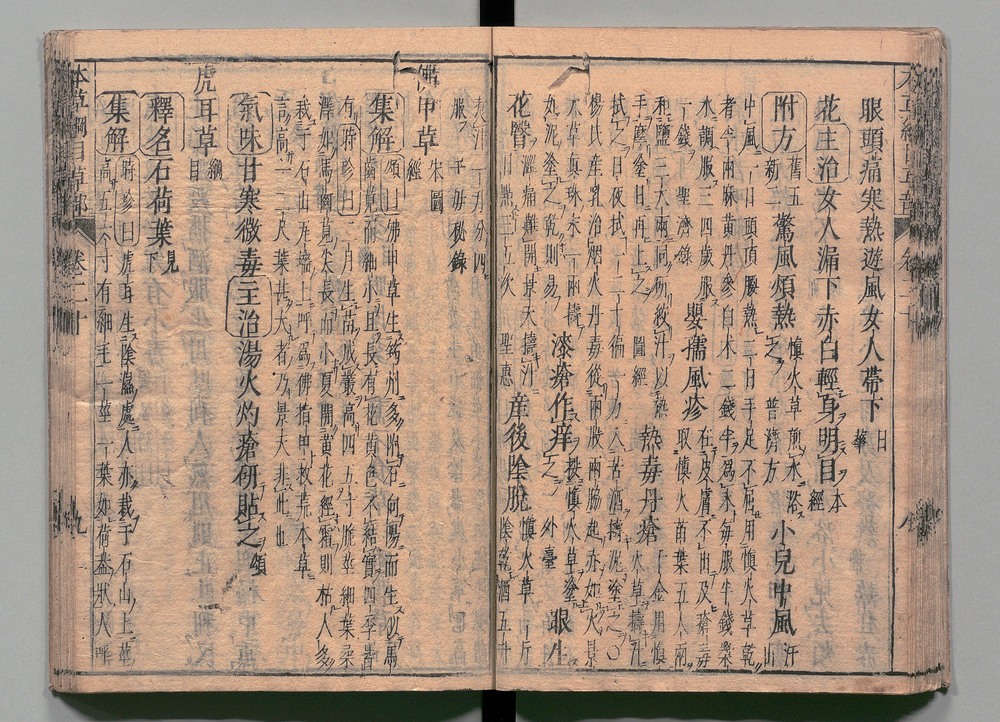 眼頭痛寒熱遊風女人帶下 日華
花主治女人漏下赤白輕身明目 本經
附方 舊五新二 驚風煩熱 慎火草煎水浴之 普濟方 小兒中風 汗出
中風一日頭頂腰熱二日手足不屈用慎火草乾
者半兩麻黃丹參白朮二錢半爲末每服半錢漿
水調服三四歲服一錢 聖濟錄 嬰孺風疹 在皮膚不出及瘡毒取慎火苗葉五大兩
和鹽三大兩同研絞汁以熱手摩塗日再上之 圖經 熱毒丹瘡 千金用慎火草擣汁
拭之日夜拭一二十徧 一方入苦酒擣泥塗之〇
楊氏產乳治烟火丹毒從兩股兩脇起赤如火景
天草真珠末一兩擣如泥塗之乾則易 漆瘡作痒 挼慎火草塗之 外臺 眼生
花瞖 澀痛難開景天擣汁日點三五次 聖惠 產後陰脫 慎火草一斤陰乾酒五升
分四服 子母秘錄
佛甲草 宋圖經
集解 頌曰佛甲草生筠州多附石向陽而生似馬
齒莧而細小且長有花黃色不結實四季皆
有時珍曰二月生苗成叢高四五寸脆莖細葉柔
澤如馬齒莧尖長而小夏開黃花經霜則枯人多
栽于石山瓦墻上呼爲佛指甲救荒本草
言高一二尺葉甚大者乃景天非此也
氣味甘寒微毒主治湯火灼瘡研貼之 頌
虎耳草 綱目
釋名石荷葉 見下
集解 時珍曰虎耳生陰濕處人亦栽于石山上莖
高五六寸有細毛一莖一葉如荷蓋狀人呼
本草綱目草部 卷二十 九